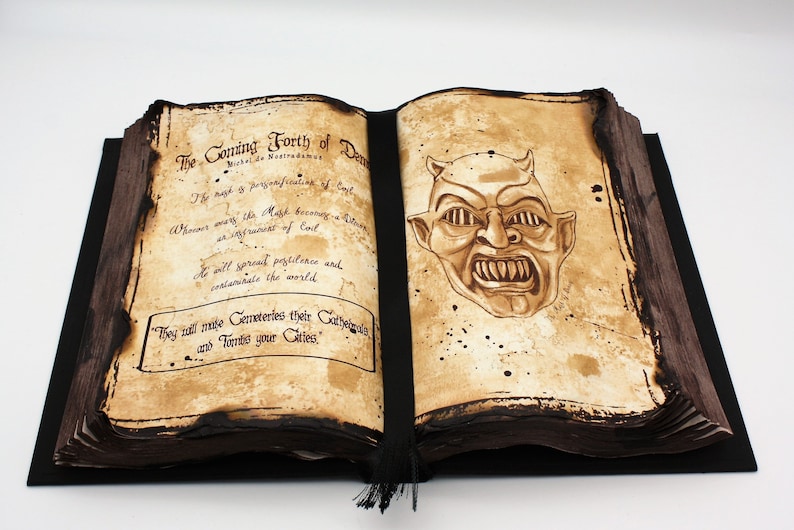 The Coming Forth of Dem
Michel de Nostradamus
The mask is personification of Evil
Whoever wears the Mask becomes a Demon,
an instrument of Evil
He will spread pestilence and
contaminate the world
"They will make Cemeteries their Cathedrals
and Tombs your Cities."